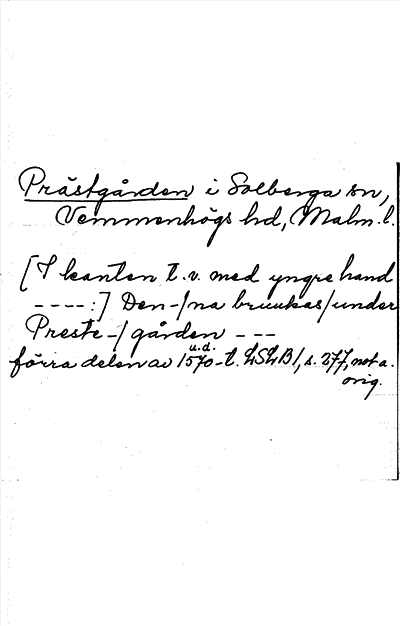 Prästgården i Solberga sn,
Vemmenhögs hd, Malm. l.
[I kanten t. v. med yngre hand
----:] Den-/na bruukas/under
Preste-/gården ---
u. d.
förra delen av 1570-t. LSLB1, s. 277, not a.
orig.